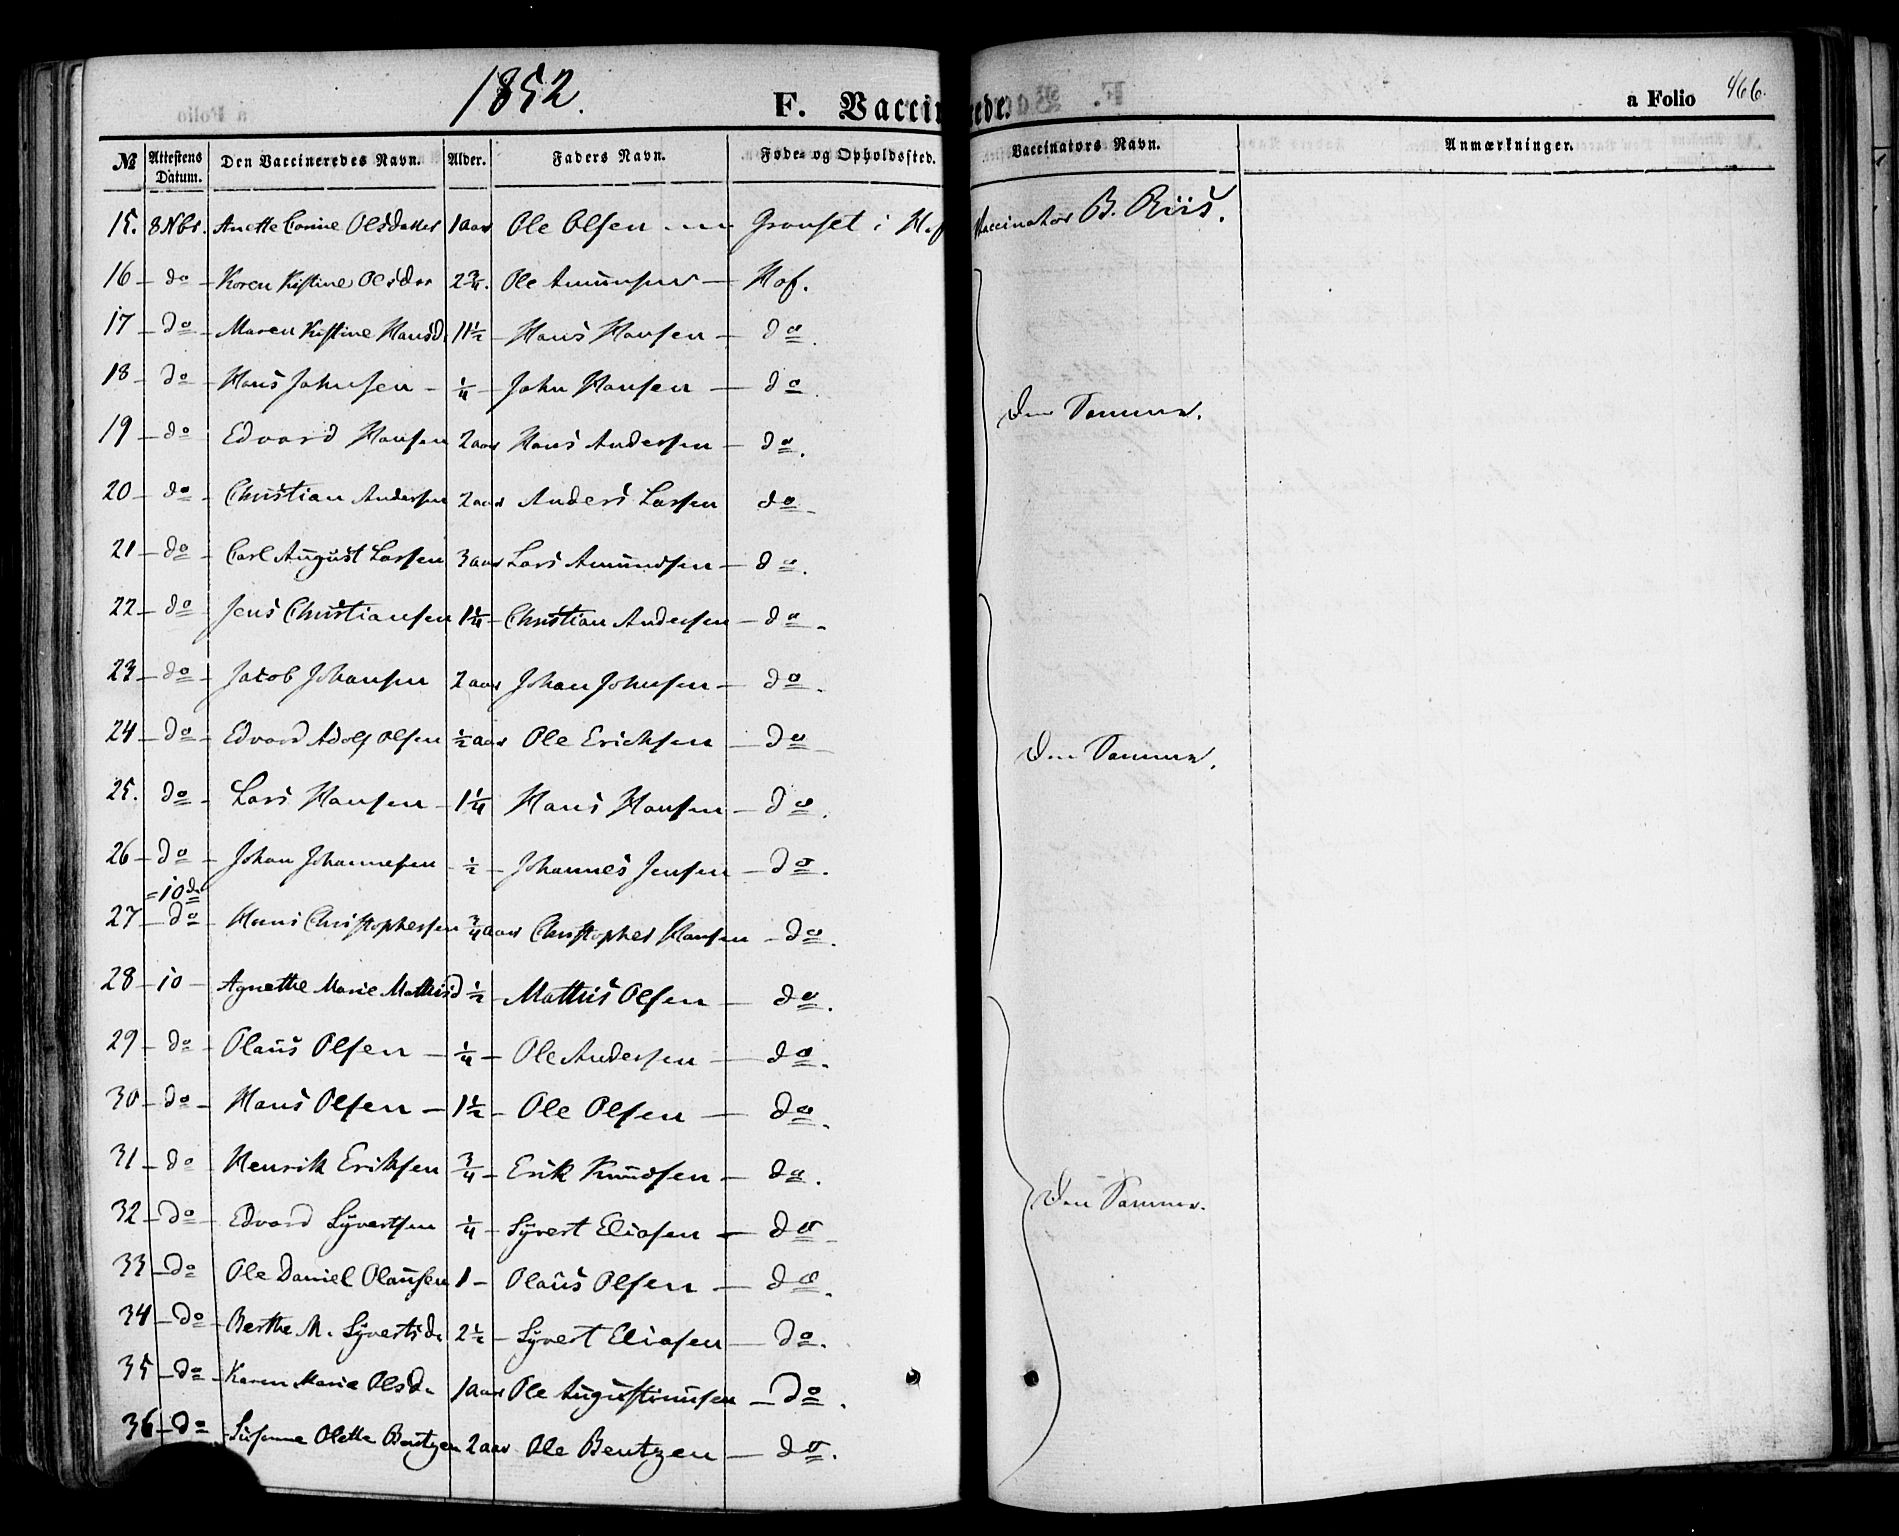 1852.
F. Vaccinerede.
a Folio 466.
№ Attestens Datum. Den Vaccineredes Navn. Alder. Faders Navn. Føde- og Opholdssted. Vaccinators Navn. Anmærkninger.
15. 8 Nbr. Anette Corine Olsdatter 1 aar Ole Olsen — Gronset i Hof Vaccinator B. Riis.
16 — do — Karen Kistine Olsdtr 2 3/4. Ole Amunsen — Hof.
17 — do — Maren Kistine Hansd. 11 1/2 — Hans Hansen — do.
18 — do — Hans Johnsen — 1/4 — John Hansen — do.
Den Samme.
19 — do — Edvard Hansen 2 aar Hans Andersen — do.
20 — do — Christian Andersen 2 aar Anders Larsen do —
21 — do — Carl August Larsen 3 aar Lars Amundsen — do.
22 — do — Jens Christiansen 1 1/4 — Christian Andersen — do —
23 — do — Jacob Johansen 2 aar Johan Johnsen — do.
24 — do — Edvard Adolf Olsen 1/2 aar Ole Ericksen — do —
Den Samme.
25. do — Lars Hansen — 1 1/4 Hans Hansen — do.
26 — do — Johan Johannesen 1/2 — Johannes Jensen — do.
= 10de
27 — do — Hans Christophersen 3/4 aar Christopher Hansen — do.
28 — 10 — Agnethe Marie Mathisd 1/2 — Mathis Olsen — do.
29 — do — Olaus Olsen — 1/4 — Ole Andersen — do.
30 — do — Hans Olsen — 1 1/2 — Ole Olsen — do.
31 — do Henrik Eriksen 3/4 — Erik Knudsen — do.
Den Samme.
32 — do — Edvard Syvertsen 1/4 — Syvert Eliasen — do —
33 — do Ole Daniel Olausen 1 — Olaus Olsen — do.
34 — do — Berthe M. Syvertsdr 2 1/2 — Syvert Eliasen — do.
35 — do — Karen Marie Olsdr 1 aar Ole Augustinusen — do.
36 — do — Susanne Olette Bentzen 2 aar Ole Bentzen — do.